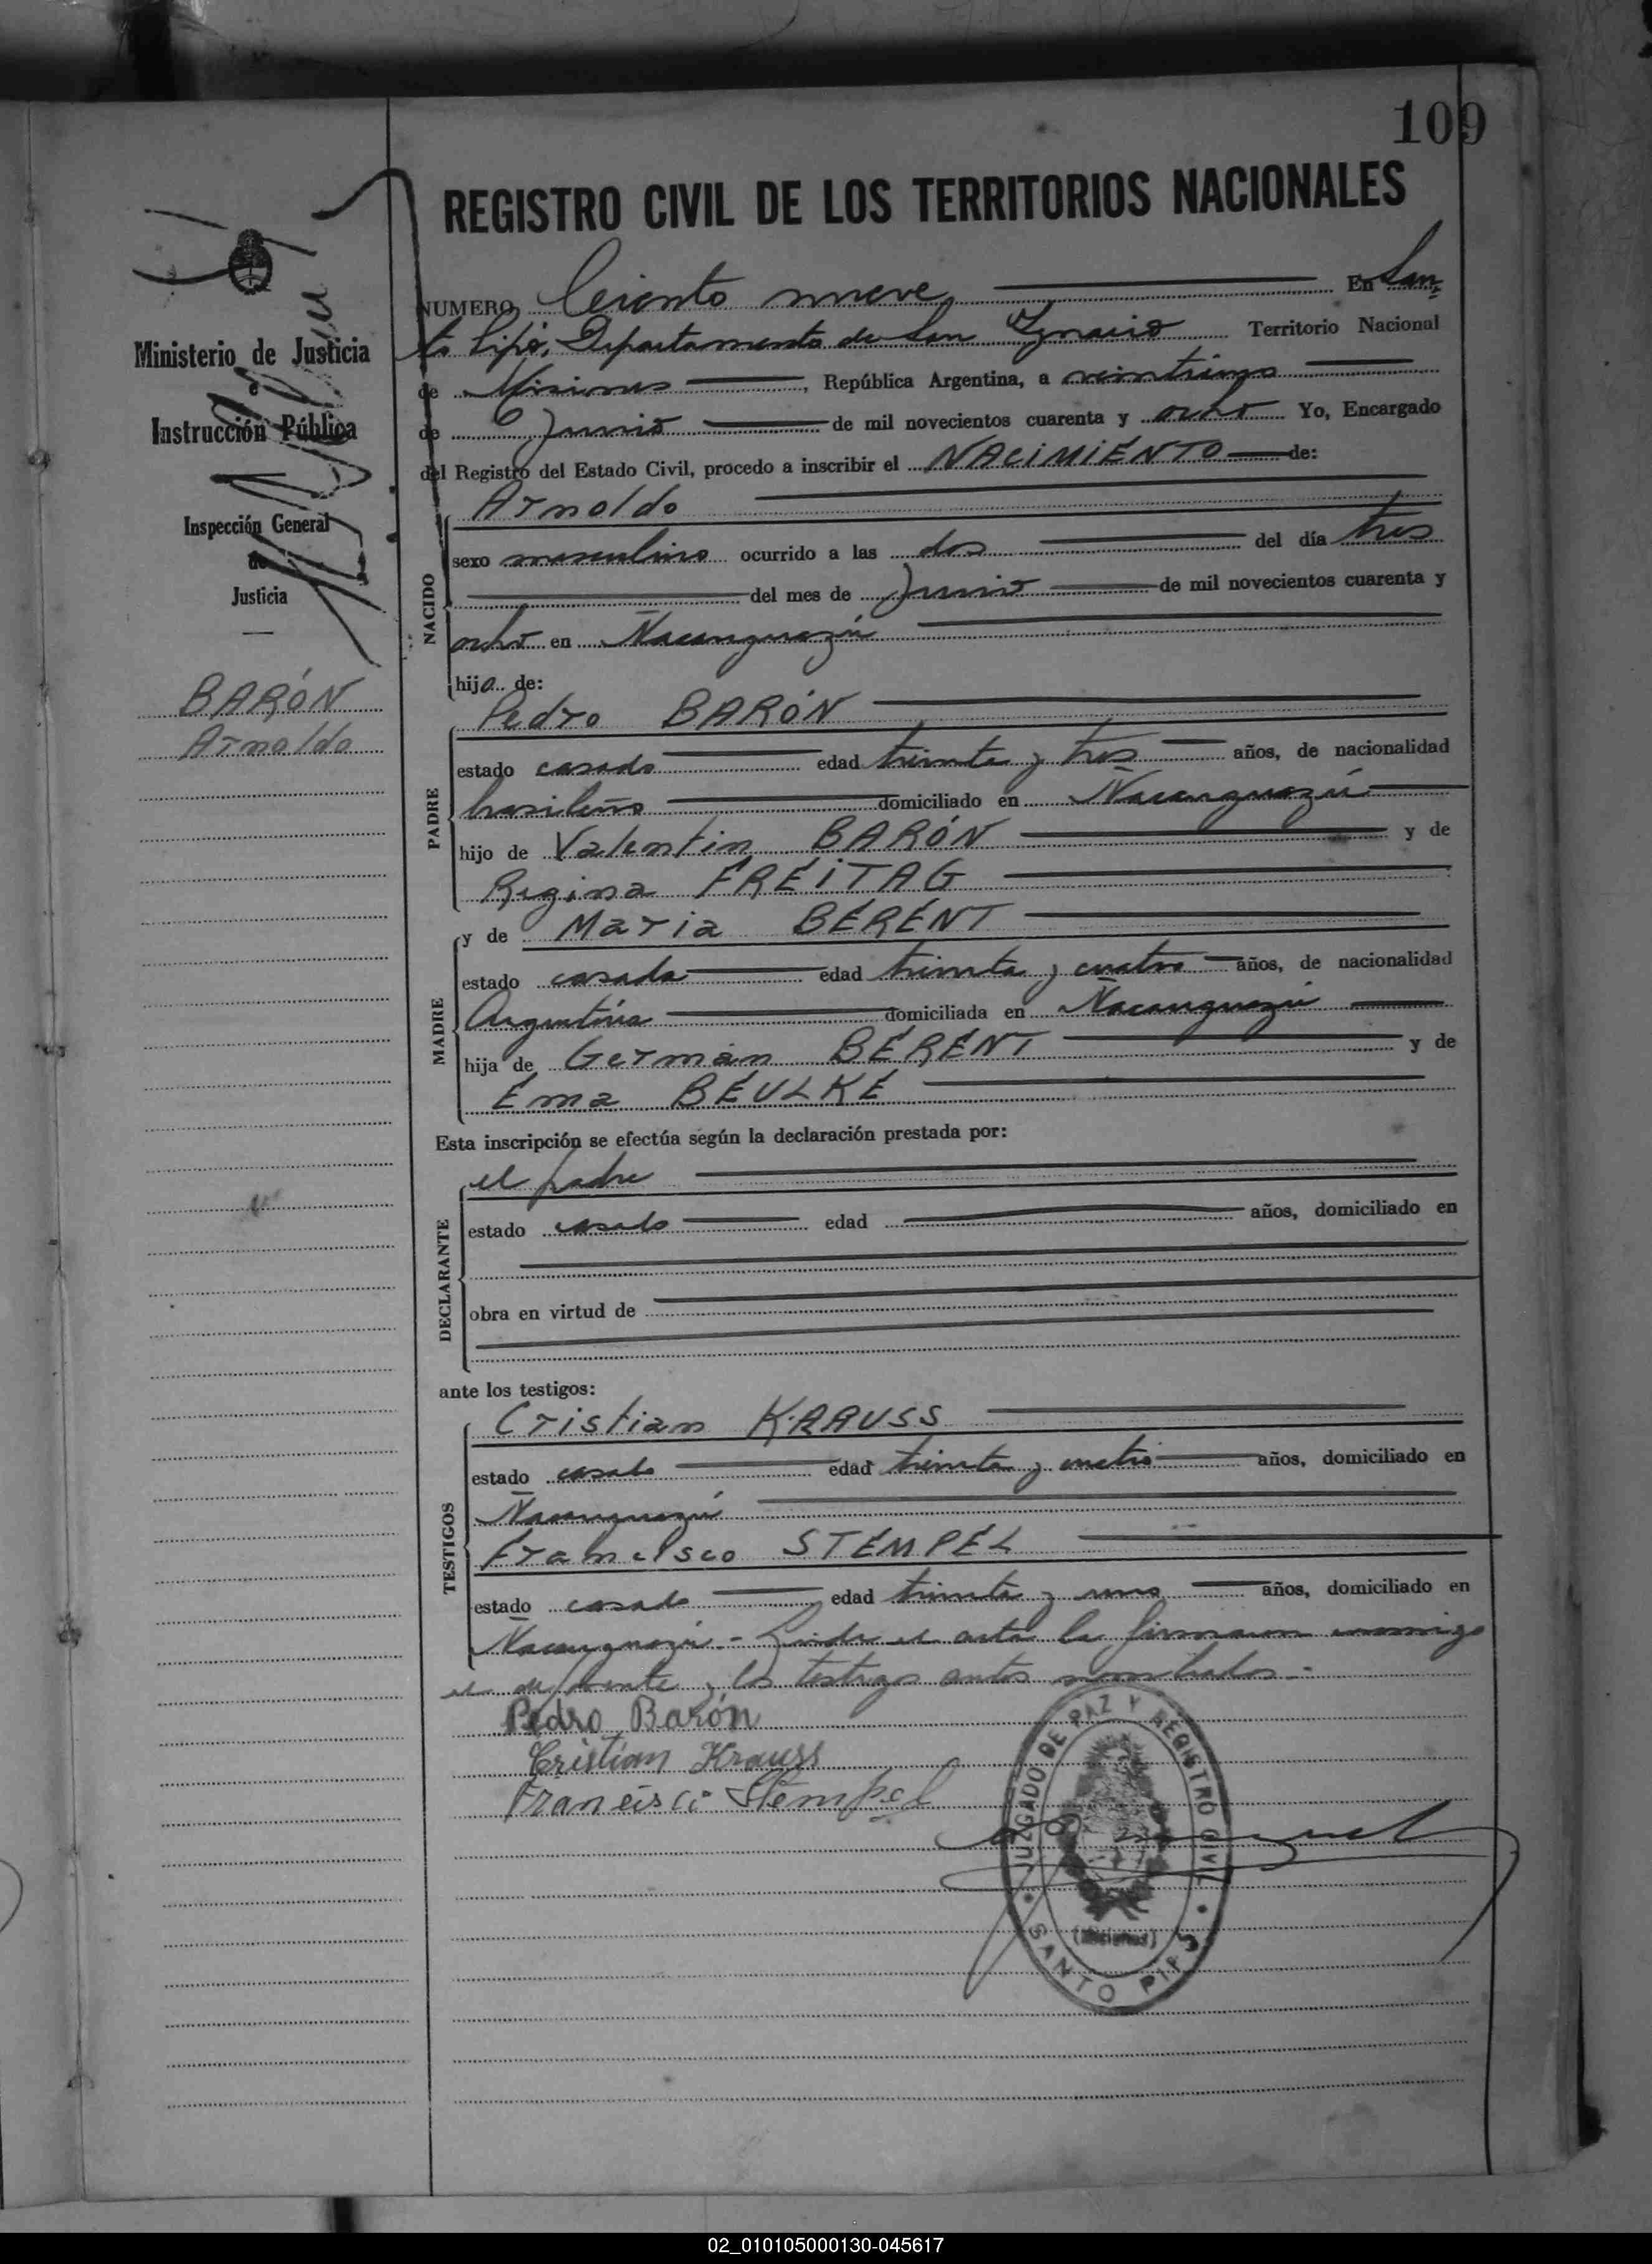 109
REGISTRO CIVIL DE LOS TERRITORIOS NACIONALES
Ministerio de Justicia
e
Instrucción Pública
Inspección General
de
Justicia
BARÓN
Arnoldo
NUMERO Ciento nueve En San
to Pipó, Departamento de San Ignacio Territorio Nacional
de Misiones, República Argentina, a
de Junio de mil novecientos cuarenta y ocho Yo, Encargado
del Registro del Estado Civil, procedo a inscribir el NACIMIENTO de:
NACIDO
Arnoldo
sexo masculino ocurrido a las dos del día tres
del mes de Junio de mil novecientos cuarenta y
ocho en Ñacanguazú
hijo de:
PADRE
Pedro BARÓN
estado casado edad treinta y tres años, de nacionalidad
brasileño domiciliado en Ñacanguazú
hijo de Valentin BARÓN y de
Regina FREITAG
MADRE
y de Maria BERENT
estado casada edad treinta y cuatro años, de nacionalidad
Argentina domiciliada en Ñacanguazú
hija de Germán BERENT y de
Ema BEULKE
Esta inscripción se efectúa según la declaración prestada por:
DECLARANTE
el padre
estado casado edad años, domiciliado en
obra en virtud de
ante los testigos:
TESTIGOS
Cristian KRAUSS
estado casado edad treinta y cuatro años, domiciliado en
Ñacanguazú
Francisco STEMPEL
estado casado edad treinta y uno años, domiciliado en
Ñacanguazú.- Leída el acta la firmaron conmigo
el declarante y los testigos antes nombrados.-
Pedro Barón
Cristian Krauss
Francisco Stempel
JUZGADO DE PAZ Y REGISTRO CIVIL
(Misiones)
SANTO PIPÓ
02_010105000130-045617